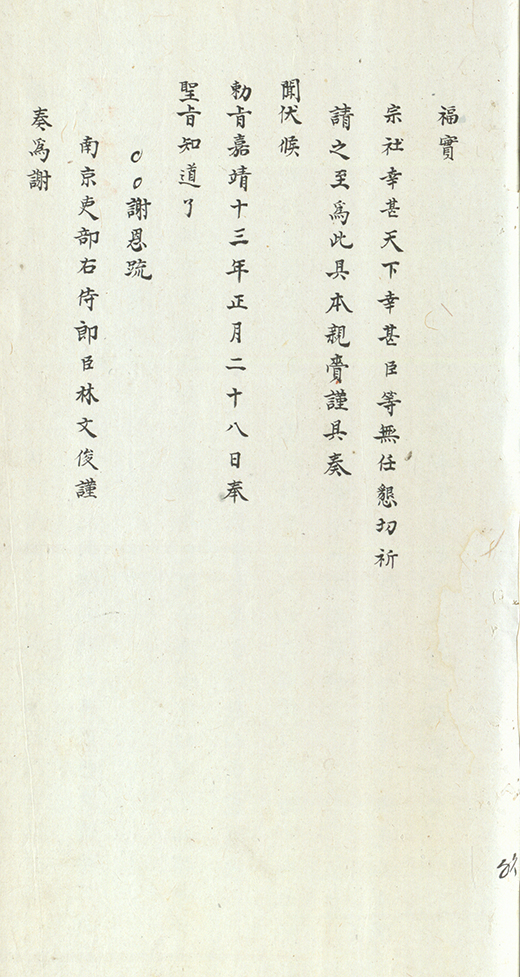 福實
宗社幸甚天下幸甚臣等無任懇切祈
請之至爲此具本親賫謹具奏
聞伏候
勅旨嘉靖十三年正月二十八日奉
聖旨知道了
○○謝恩疏
南京吏部右侍郎臣林文俊謹
奏爲謝